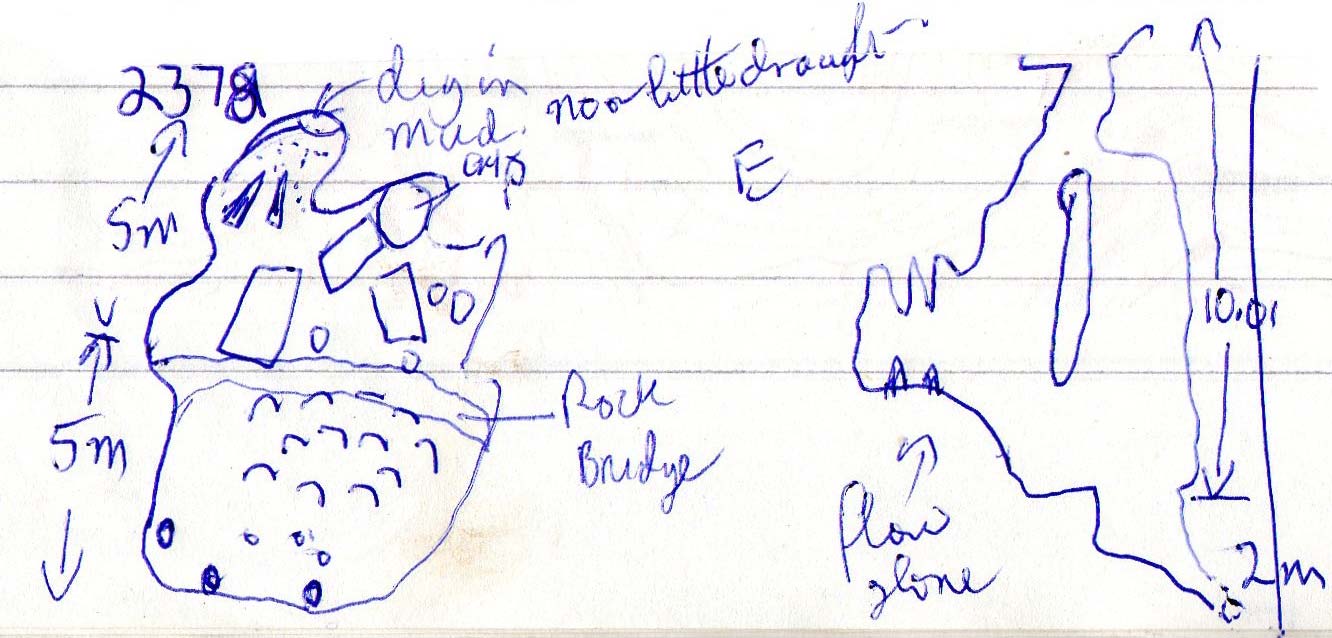 2378
dig in
mud.
no or little draught
5m
E
10.01
5m
Rock
Bridge
Flow
stone
2m